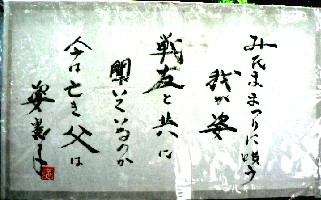 みたままつりに唄う
我が姿
戦友と共に
聞いているのか
今は亡き父は